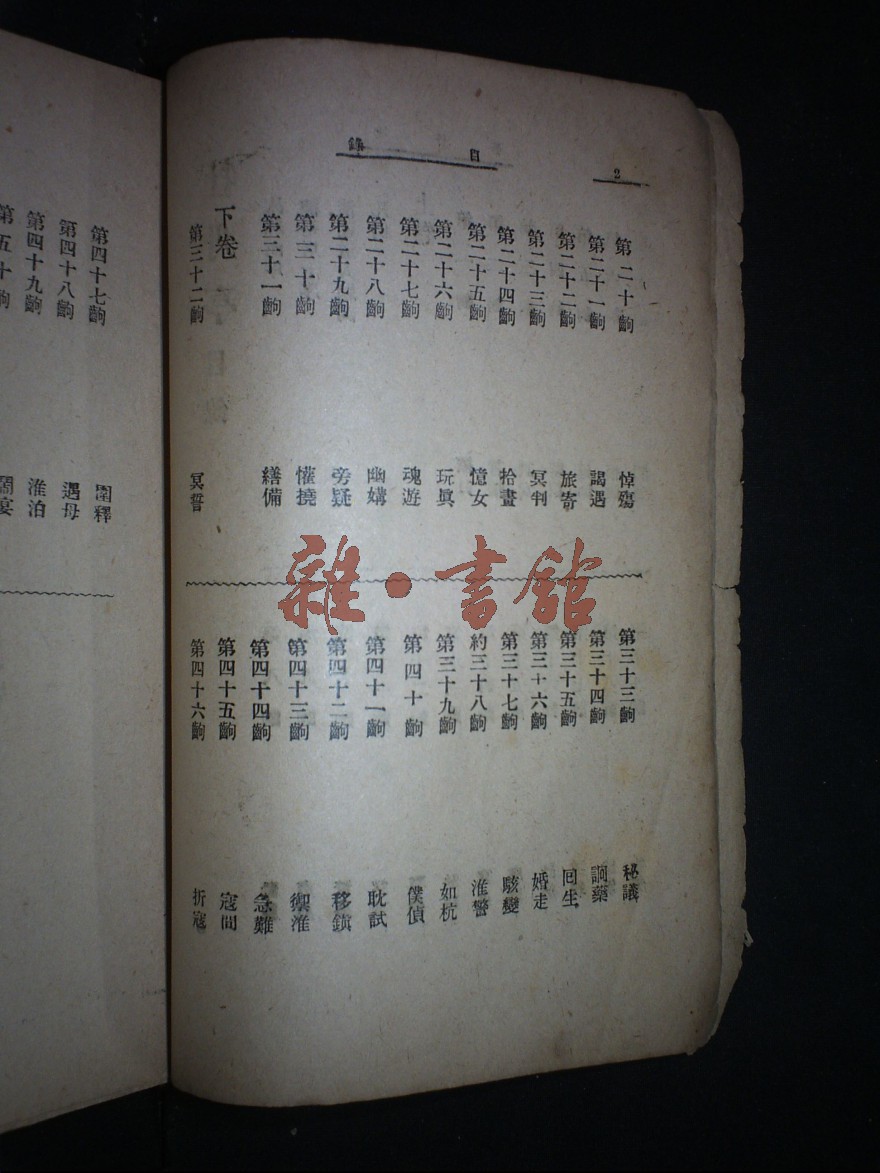 目錄
2
第二十齣 悼殤
第二十一齣 謁遇
第二十二齣 旅寄
第二十三齣 冥判
第二十四齣 拾畫
第二十五齣 憶女
第二十六齣 玩眞
第二十七齣 魂遊
第二十八齣 幽媾
第二十九齣 旁疑
第三十齣 懽撓
第三十一齣 繕備
下卷
第三十二齣 冥誓
第三十三齣 秘議
第三十四齣 詗藥
第三十五齣 回生
第三十六齣 婚走
第三十七齣 駭變
約三十八齣 淮警
第三十九齣 如杭
第四十齣 僕偵
第四十一齣 耽試
第四十二齣 移鎮
第四十三齣 禦淮
第四十四齣 急難
第四十五齣 寇間
第四十六齣 折寇
第四十七齣 圍釋
第四十八齣 遇母
第四十九齣 淮泊
第五十齣 鬧宴
雜·書館